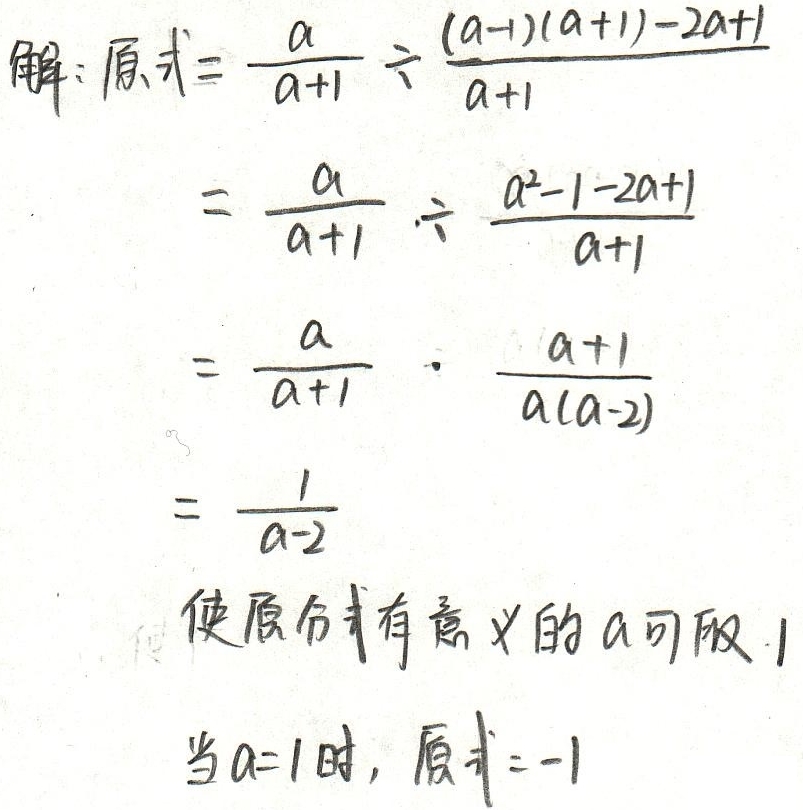 解:原式= a/(a+1) ÷ ((a-1)(a+1)-2a+1)/(a+1)
= a/(a+1) ÷ (a²-1-2a+1)/(a+1)
= a/(a+1) · (a+1)/(a(a-2))
= 1/(a-2)
使原分式有意义的a可取1
当a=1时,原式=-1